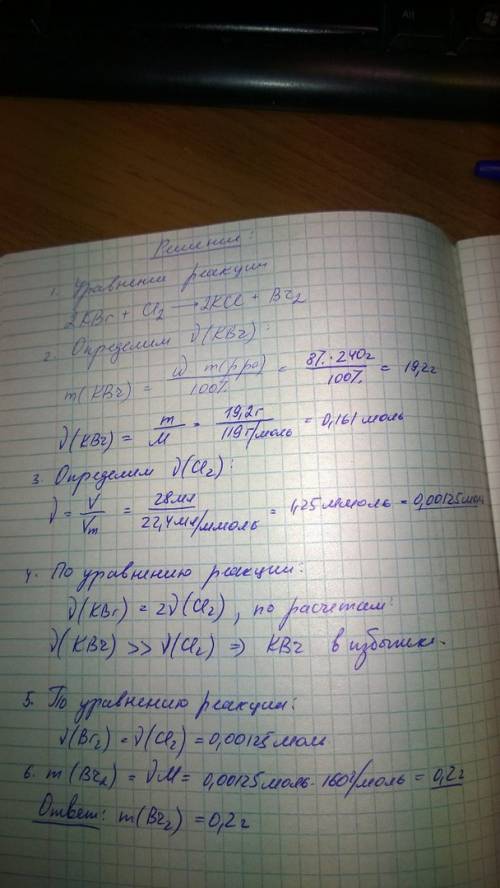 Решение:
1. Уравнение реакции
2KBr + Cl₂ → 2KCl + Br₂
2. Определим ν(KBr):
m(KBr) = ω m(р-ра) / 100% = 8% · 240г / 100% = 19,2г
ν(KBr) = m / M = 19,2г / 119 г/моль = 0,161 моль
3. Определим ν(Cl₂):
ν = V / Vm = 28мл / 22,4 мл/ммоль = 1,25 ммоль = 0,00125 моль
4. По уравнению реакции:
ν(KBr) = 2ν(Cl₂), по расчетам:
ν(KBr) >> ν(Cl₂) ⇒ KBr в избытке.
5. По уравнению реакции:
ν(Br₂) = ν(Cl₂) = 0,00125 моль
6. m(Br₂) = νM = 0,00125 моль · 160 г/моль = 0,2г
Ответ: m(Br₂) = 0,2г